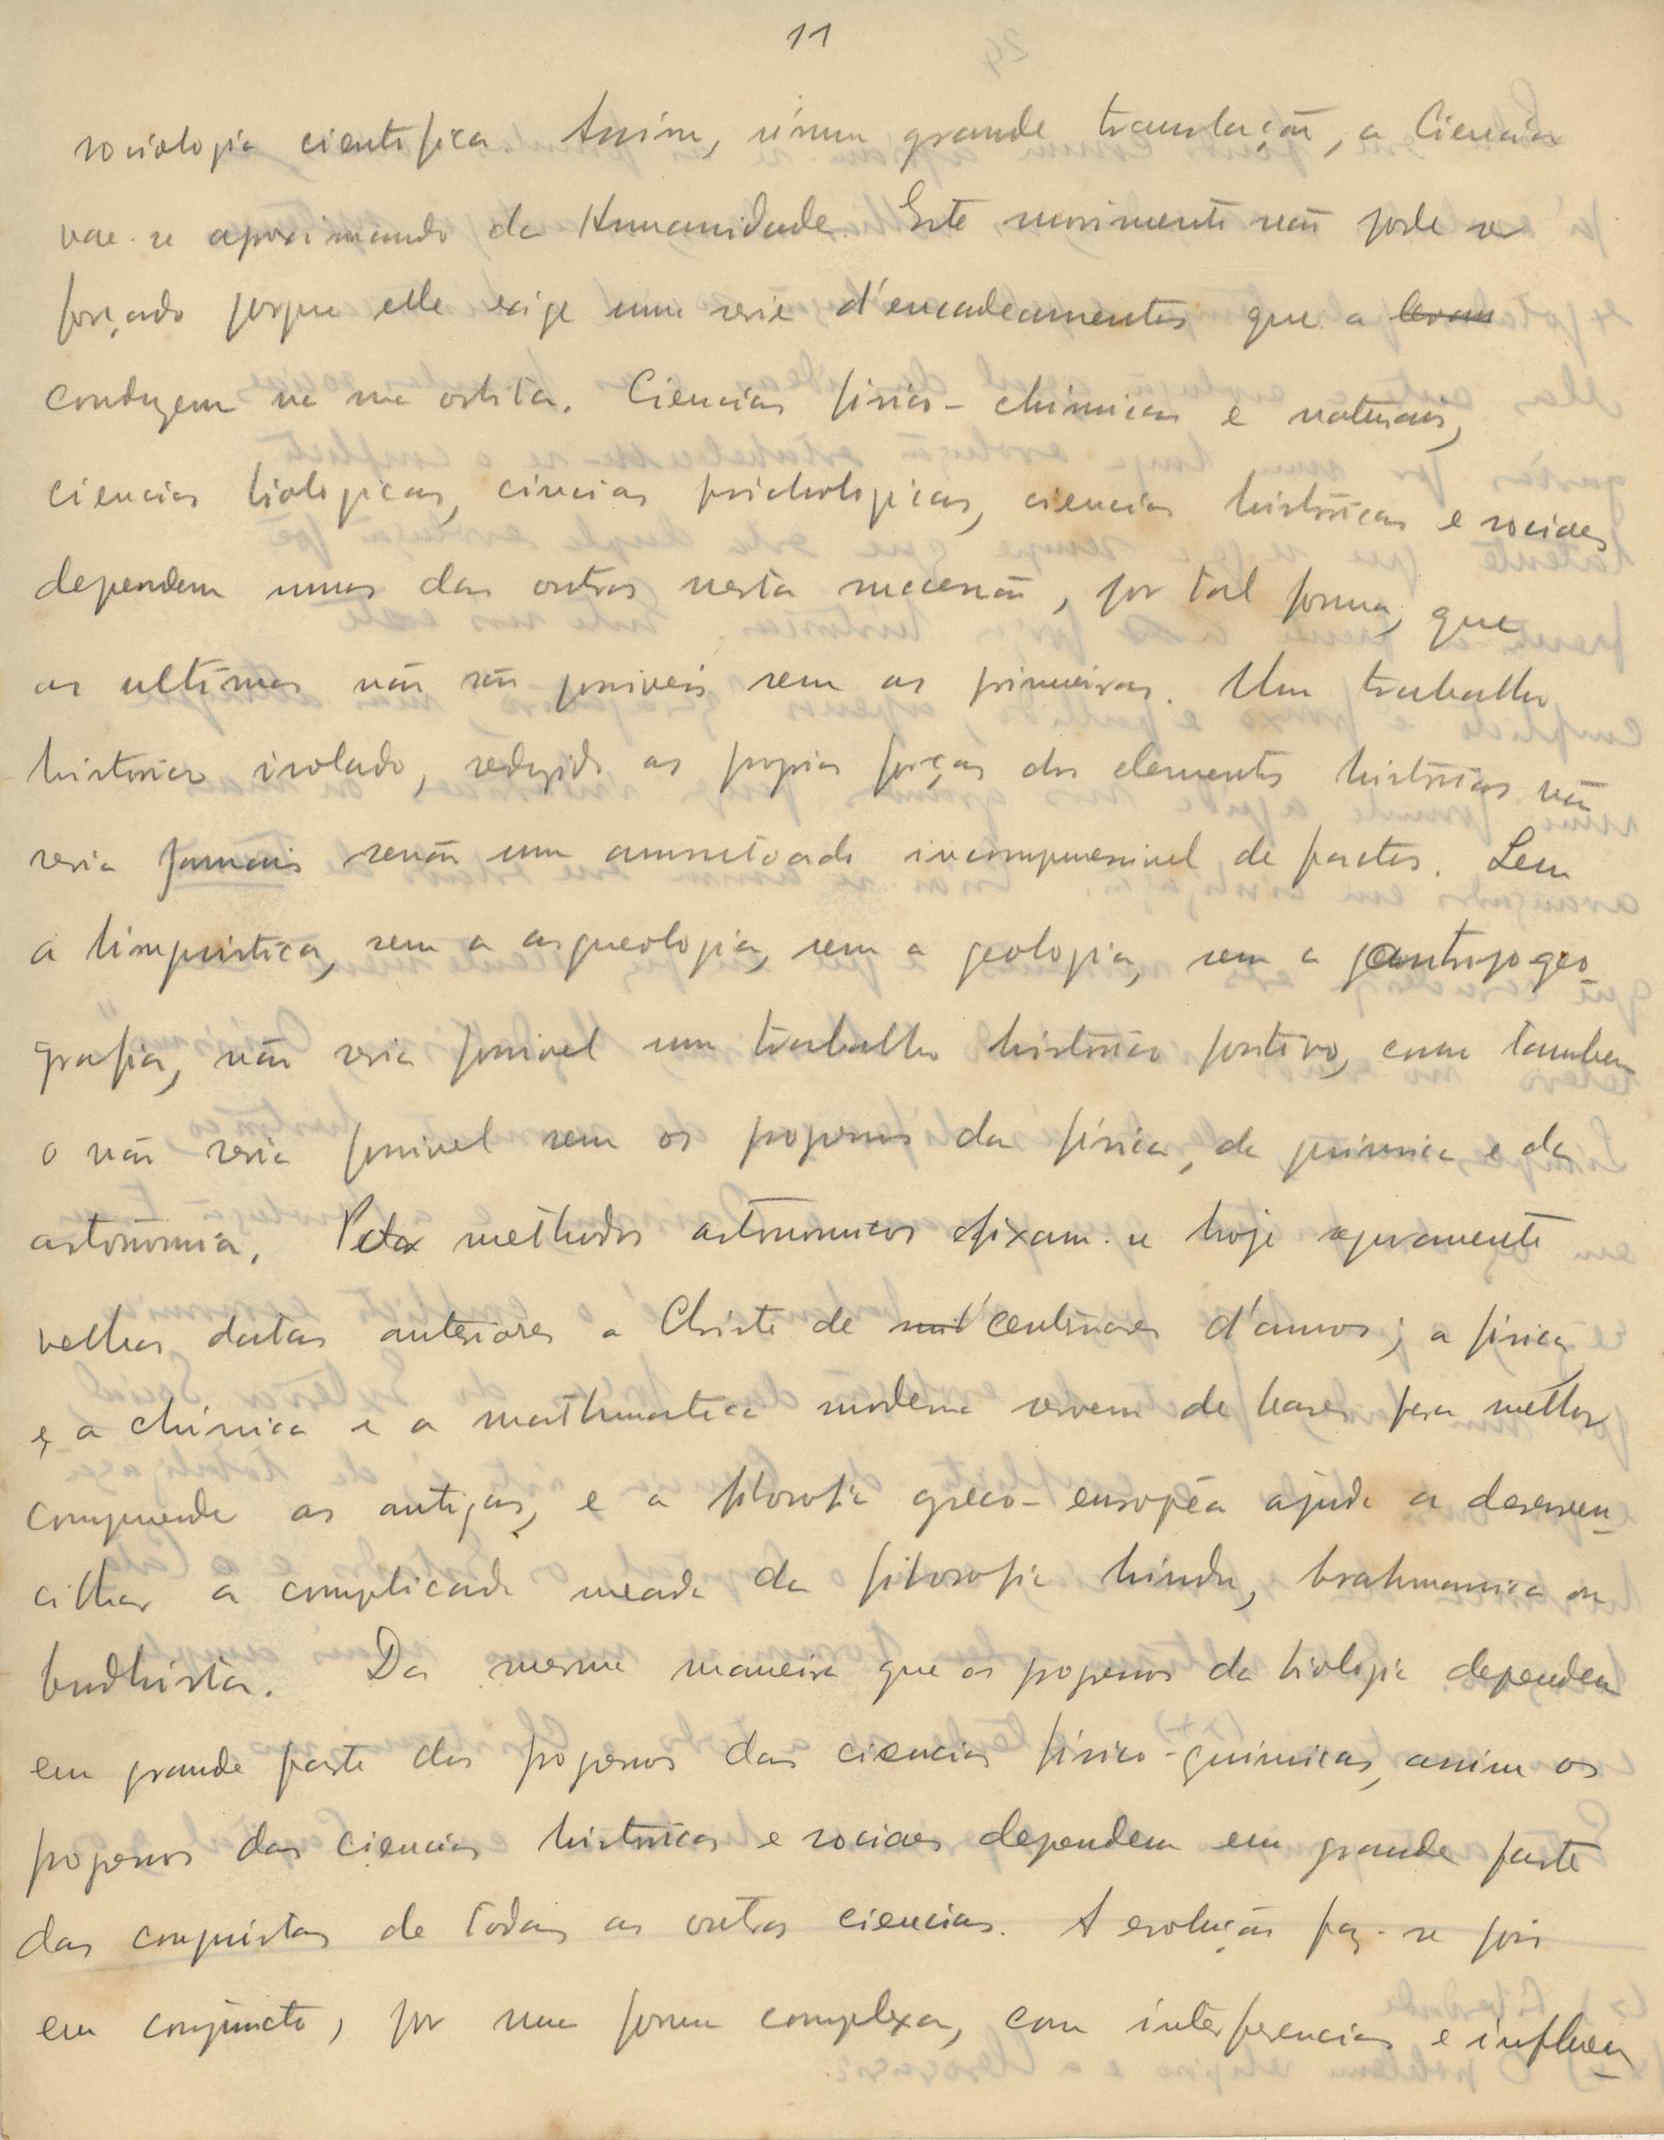 11
sociologia cientifica. Assim, n'uma grande translação, a Ciencia
vae-se aproximando da Humanidade. Este movimento não pode ser
forçado porque elle exige uma serie d'encadeamentos que a levam
conduzem na sua orbita. Ciencias fisico-chimicas e naturais,
ciencias biologicas, ciencias psichologicas, ciencias históricas e sociaes
dependem umas das outras nesta sucessão, por tal forma, que
as ultimas não são possiveis sem as primeiras. Um trabalho
historico isolado, reduzido as proprias forças dos elementos históricos não
seria jamais senão um amontoado incompreensivel de factos. Sem
a linguistica, sem a arqueologia, sem a geologia, sem a antropogeo-
grafia, não seria possivel um trabalho histórico positivo, como tambem
o não seria possivel sem os progressos da fisica, da quimica e da
astronomia. Pelos methodos astronomicos fixam-se hoje seguramente
velhas datas anteriores a Christo de mil centenares d'annos; a fisica
e a chimica e a mathematica moderna servem de bases para melhor
comprender as antigas, e a filosofia greco-européa ajuda a desenven-
cilhar a complicada meada da filosofia hindu, brahmanica ou
budhista. Da mesma maneira que os progressos da biologia dependem
em grande parte dos progressos das ciencias fisico-quimicas, assim os
progressos das ciencias históricas e sociaes dependem em grande parte
das conquistas de todas as outras ciencias. A evolução faz-se pois
em conjuncto, por uma forma complexa, com interferencias e influen-